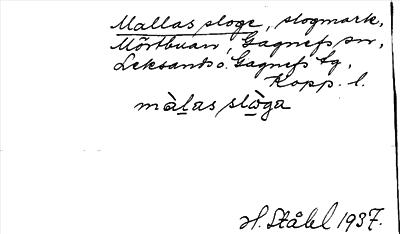 Mallas sloge, slogmark,
Mörtbuan, Gagnefs sn,
Leksands o. Gagnefs tg,
Kopp. l.
màlas slòga
H. Ståhl 1937.